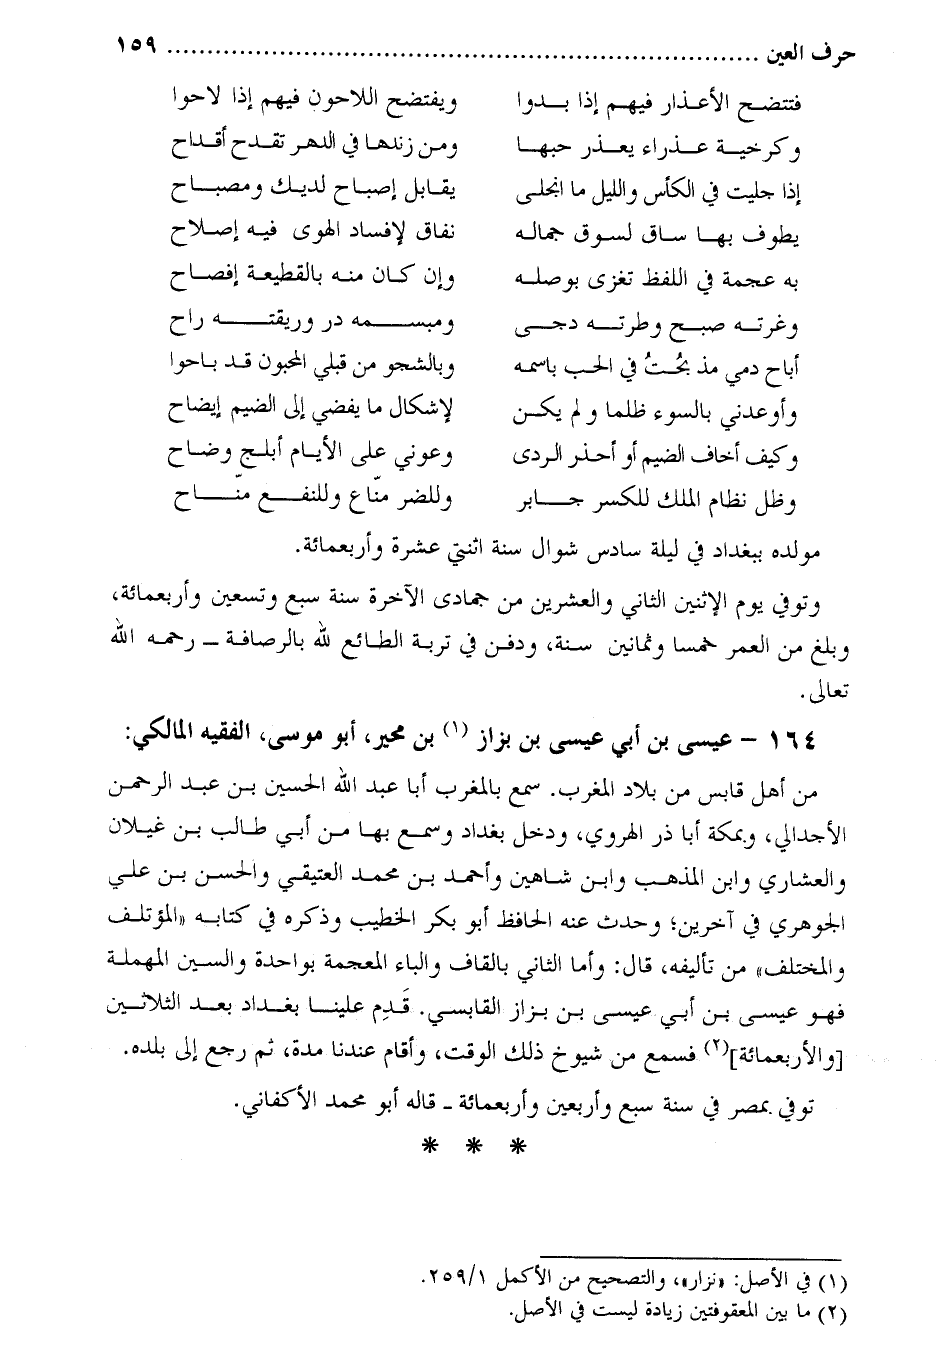 حرف العين ........................................................................ ١٥٩
فتتضح الأعذار فيهم إذا بدوا ويفتضح اللاحون فيهم إذا لاحوا
وكرخية عذراء يعذر حبها ومن زندها في الدهر تقدح أقداح
إذا جليت في الكأس والليل ما انجلى يقابل إصباح لديك ومصباح
يطوف بها ساق لسوق جماله نفاق لإفساد الهوى فيه إصلاح
به عجمة في اللفظ تغزى بوصله وإن كان منه بالقطيعة إفصاح
وغرته صبح وطرته دجى ومبسمه در وريقته راح
أباح دمي مذ بُحْتُ في الحب باسمه وبالشجو من قبلي المحبون قد باحوا
وأوعدني بالسوء ظلما ولم يكن لإشكال ما يفضي إلى الضيم إيضاح
وكيف أخاف الضيم أو أحذر الردى وعوني على الأيام أبلج وضاح
وظل نظام الملك للكسر جابر وللضر منّاع وللنفع منّاح
مولده ببغداد في ليلة سادس شوال سنة اثنتي عشرة وأربعمائة.
وتوفي يوم الإثنين الثاني والعشرين من جمادى الآخرة سنة سبع وتسعين وأربعمائة،
وبلغ من العمر خمسا وثمانين سنة، ودفن في تربة الطائع لله بالرصافة ــ رحمه الله
تعالى.
١٦٤ – عيسى بن أبي عيسى بن بزاز (١) بن محير، أبو موسى، الفقيه المالكي:
من أهل قابس من بلاد المغرب. سمع بالمغرب أبا عبد الله الحسين بن عبد الرحمن
الأجدالي، وبمكة أبا ذر الهروي، ودخل بغداد وسمع بها من أبي طالب بن غيلان
والعشاري وابن المذهب وابن شاهين وأحمد بن محمد العتيقي والحسن بن علي
الجوهري في آخرين؛ وحدث عنه الحافظ أبو بكر الخطيب وذكره في كتابه «المؤتلف
والمختلف» من تأليفه، قال: وأما الثاني بالقاف والباء المعجمة بواحدة والسين المهملة
فهو عيسى بن أبي عيسى بن بزاز القابسي. قَدِم علينا بغداد بعد الثلاثين
[والأربعمائة](٢) فسمع من شيوخ ذلك الوقت، وأقام عندنا مدة، ثم رجع إلى بلده.
توفي بمصر في سنة سبع وأربعين وأربعمائة ـ قاله أبو محمد الأكفاني.
* * *
(١) في الأصل: «نزار»، والتصحيح من الأكمل ٢٥٩/١.
(٢) ما بين المعقوفتين زيادة ليست في الأصل.